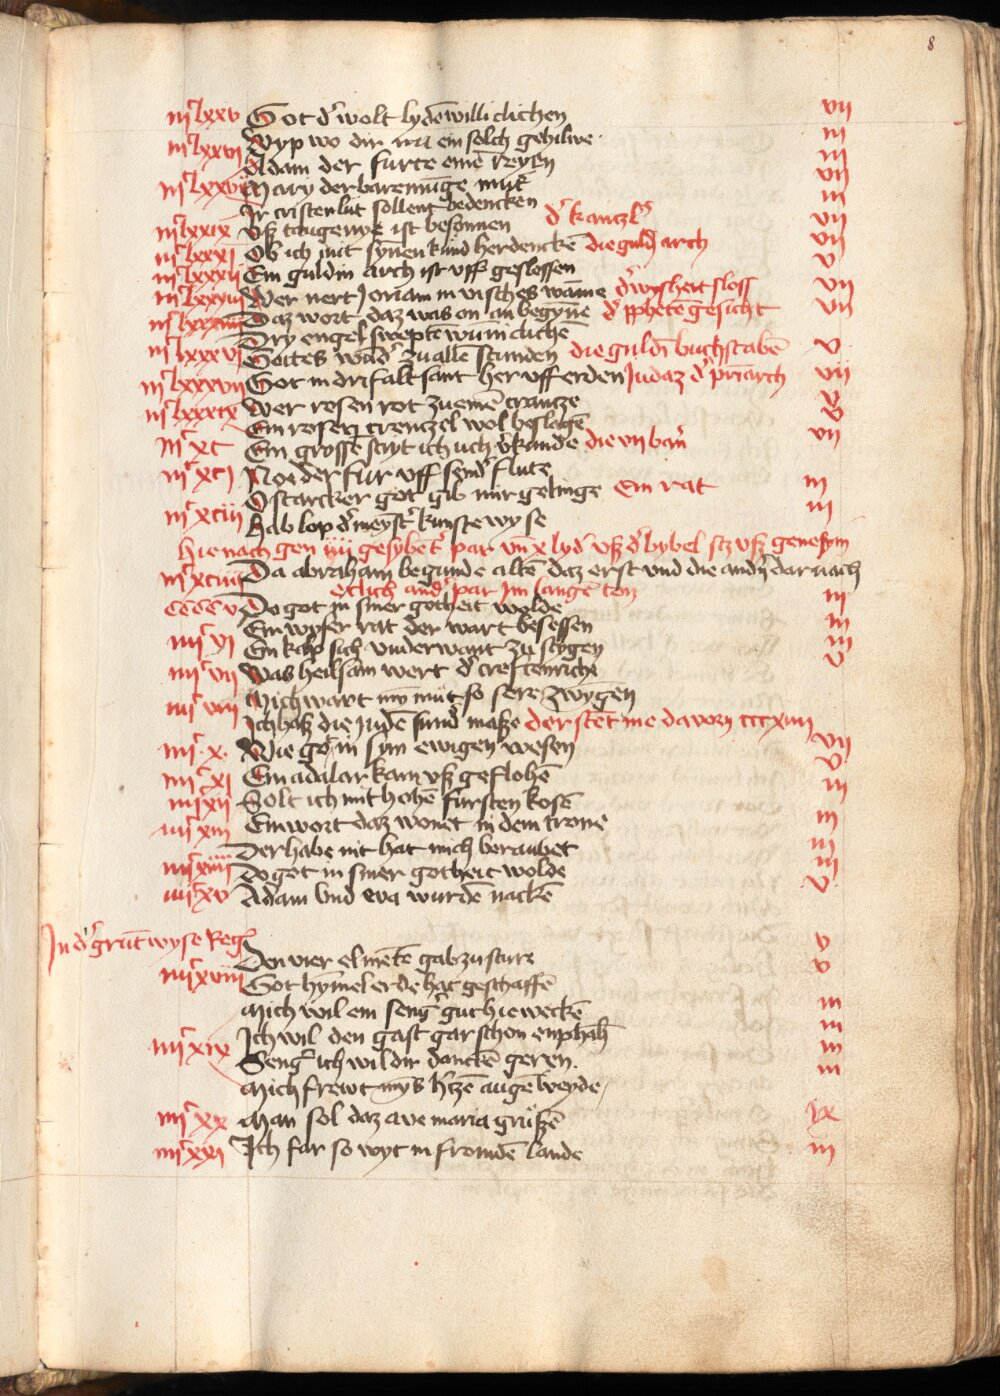 8
iijᶜlxxv Got dˀ wolt lydē williclichen vij
wyp wo dir nu ein solch gehilwe iij
iijᶜlxxvj Adam der furte einē reyen iij
iijᶜlxxvij Mary der barem̄nge mut vij
Ir cristenlut sollent bedencken iij
iijᶜlxxix vß taugenye ist besonnen dˀ kantzlˀ vij
iijᶜlxxxj Ob ich mit synen kund herdenckē die guldˀ arch vij
iijᶜlxxxij Ein guldin arch ist vff geslossen v
iijᶜlxxxiij wer nert Jonam in visches wāme dˀ wysheit sloss vij
iijᶜlxxxiiij Daz wort daz was on an begynne dˀ pphetē gesicht vij
Dry engel sweptē wunniclichē
iijᶜlxxxvj Gottes wūdˀ zu allē stunden die guldī buchstabē v
iijᶜlxxxvij Got in drifalt sant her vff erden Judaz dˀ priarch vij
iijᶜlxxxix wer rosen rot zu einē crantze v
Ein rosen crentzel wol beslagē v
iijᶜxc Ein grosse scryt ich uch v̄kunde die vij barn̄ vij
iijᶜxcj Noe der fur vff szindˀ flute
O starcker got gib mir gelinge Ein rat iij
iijᶜxciij hab lop dˀ meystˀ kunste wyse iij
hie nach gen iiij gesybetˀ par vn̄ x lydˀ vß dˀ bybel stz vß genesym
iijᶜxciiij Da abraham begunde altē daz erst vnd die andˀn dar nach
etlich andˀ par Im langē ton iij
ccccv Do got in siner gotheit wolde
Ein wyser rat der wart besessen iij
iiijᶜvj Ein kalp sich vnderwant zu stygen iij
iiijᶜvij Was heilsam wert dˀ crefftenriche v
iiijᶜviij Mich wart myn mut so sere zwygen
Ich haß die Judē sundˀ maße der stet me davorn cccxiiij
iiijᶜ x. Wie got in sym ewigen wesen vij
iiijᶜxj Ein adalar kam vß geflohē v
iiijᶜxij Solt ich mit hohē fursten kosē iij
iiijᶜxiij Ein wort daz wonet in dem trone iij
Der habe nit hat mich beraubet iij
iiijᶜxiiij Do got in siner gotheit wolde iij
iiijᶜxv Adam vnd eva wurdē nackē v
In dˀ grūt wyse Regˀ
Den vier elmētē gab zu sture v
iiijᶜxviij Got hymel erde hat geschaffē v
Mich wil ein sengˀ gut hie weckē iij
Ich wil den gast gar schon enphahē iij
iiijᶜxix Sengˀ ich wil dir danckē geren. iij
Mich frewt myns hˀtzē augē weyde iij
iiijᶜxx Man sol daz ave maria grußē ix
iiijᶜxxj Ich far so wyt in fromdē lande iij